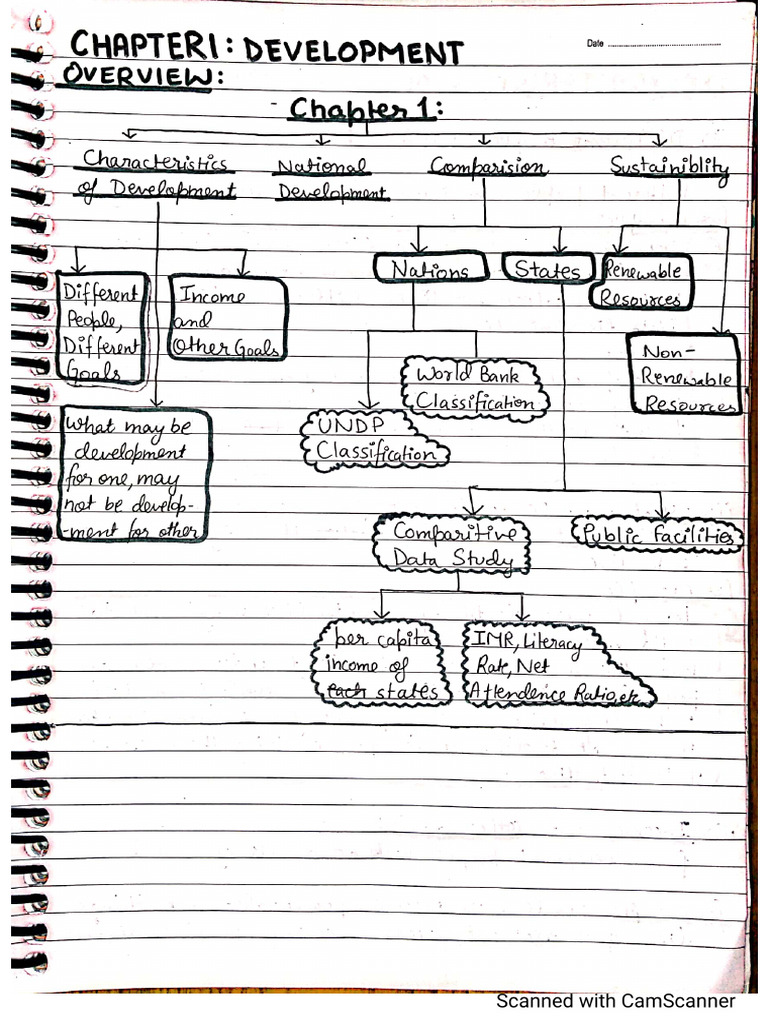 CHAPTER1: DEVELOPMENT
Date
OVERVIEW:
Chapter 1:
Characteristics
of Development
National
Development
Comparision
Sustainiblity
Different
People,
Different
Goals
Income
and
Other Goals
What may be
development
for one, may
not be develop-
-ment for other
Nations
States
Renewable
Resources
Non-
Renewable
Resources
World Bank
Classification
UNDP
Classification
Comparitive
Data Study
Public Facilities
per capita
income of
each states
IMR, Literacy
Rate, Net
Attendence Ratio, etc
Scanned with CamScanner